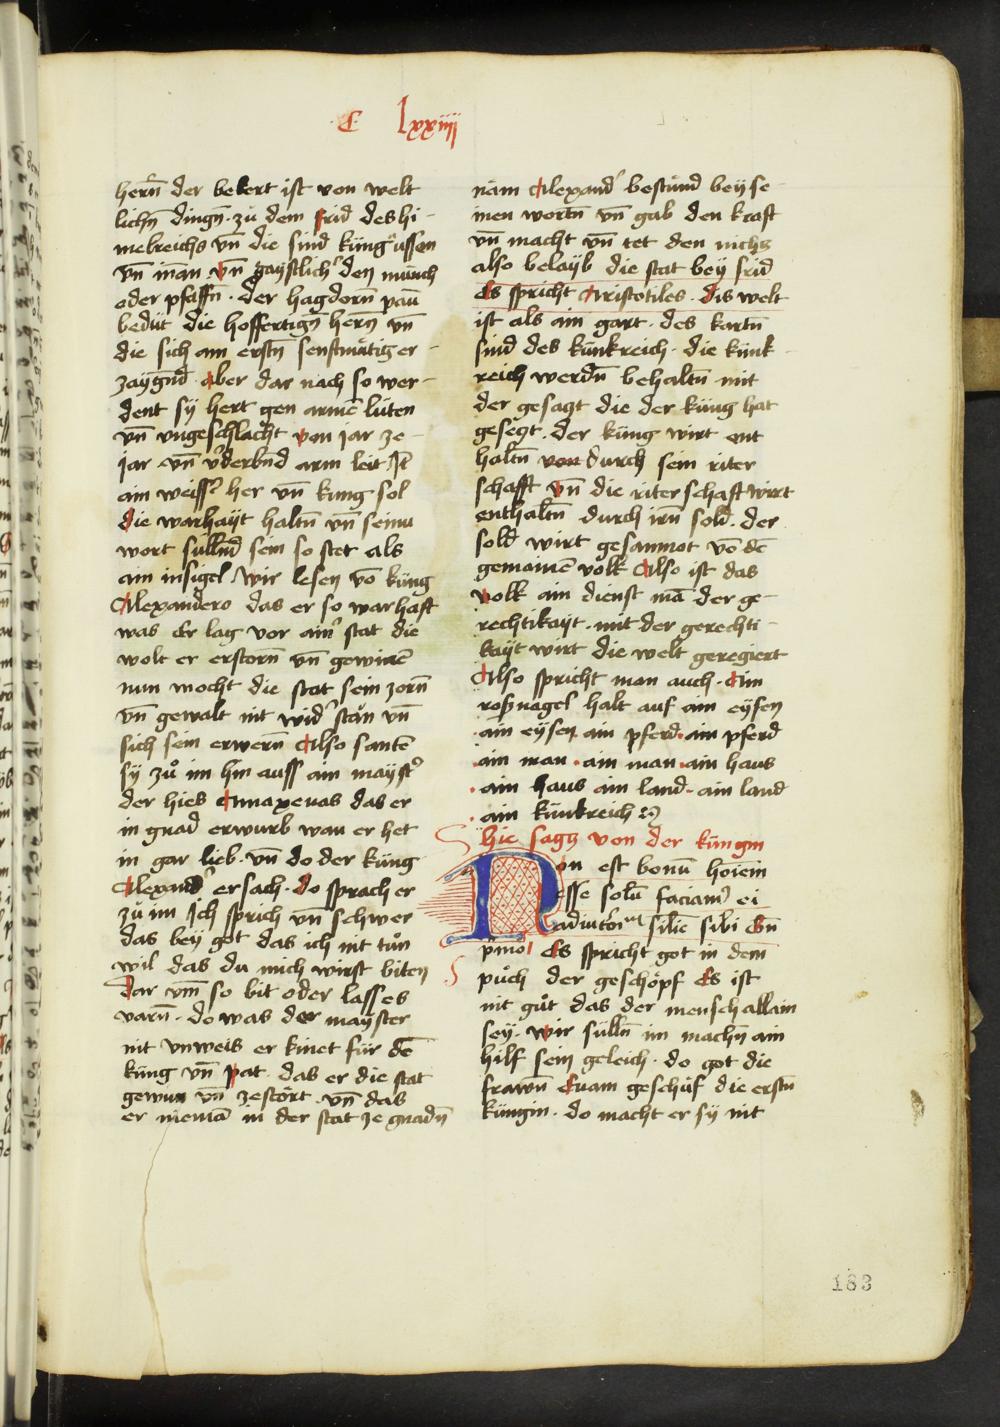 C lxxiiij
hern̄ der bekert ist von welt
lichn̄ dingn̄ · zů dem frid des hi-
melreichs vn̄ die sind küng aussen
vn̄ inān vn̄ gaystlich den münch
oder pfaffn̄ · der hagdorn̄ paū
bedüt die hoffertign̄ hern̄ vn̄
die sich am erstn̄ senftmätig er-
zaygn̄d · Aber dar nach so wer-
dent sy hert gen armē lüten
vn̄ vngeschlacht von jar ze-
jar vn̄ vḋerbn̄d arm leit Jt̄
ain weiss᷒ her vn̄ kung sol
die warhayt haltn̄ vn̄ seinu
wort sülln̄d sein so stet als
ain insigel · Wir lesen vō küng
Alexandero das er so warhaft
was Er lag vor ain᷒ stat die
wolt er erstorn̄ vn̄ gewinē
nun mocht die stat sein zorn̄
vn̄ gewalt nit wid᷒ stän vn̄
sich sein erwern̄ Also santē
sy zů im hin auss ain mayst᷒
der hies Anaxenas das er
in gnad erwurb wan er het
in gar lieb · vn̄ do der küng
Alexand᷒ ersach · do sprach er
zů im Ich sprich vn̄ schwer
das bey got das ich nit tůn
wil das du mich wirst biten
Dar vm̄ so bit oder lass es
varn̄ · do was der mayster
nit vnweis er kniet für dē
küng vn̄ pat das er die stat
gewun vn̄ zestört vn̄ das
er niemā in der stat ze gnadn̄
näm Alexand᷒ bestünd bey se-
inen wortn̄ vn̄ gab den kraft
vn̄ macht vn̄ tet den nichs
also belayb die stat bey frid
Es spricht Aristotiles · dis welt
ist als ain gart · des kartn̄
sind des künkreich · die künk-
reich werdn̄ behaltn̄ mit
der gesagt die der küng hat
gesegt · der küng wirt ent
haltn̄ von durch sein riter
schafft vn̄ die riterschaft wirt
enthaltn̄ durch irn̄ sold · der
sold wirt gesammot vō dē
gemainē volk Also ist das
volk ain dienst mā der ge-
rechtikayt · mit der gerechti-
kayt wirt die welt geregiert
Also spricht man auch · Ain
rosnagel halt auf ain eysen
· ain eysen ain pferd · ain pferd
· ain man · ain man · ain haus
· ain haus ain land · ain land
· ain künkreich ꝛc
hie sagt von der küngin
Non est bonū hoīem
esse solū faciam᷒ ei
adiutoriū silīe sibi Gn̄
p̄mo Es spricht got in dem
půch der geschöpf Es ist
nit gůt das der mensch allain
sey · wir sülln̄ im machn̄ ain
hilf sein geleich · do got die
frawn̄ Euam geschüf die erstn̄
küngin · do macht er sy nit
183